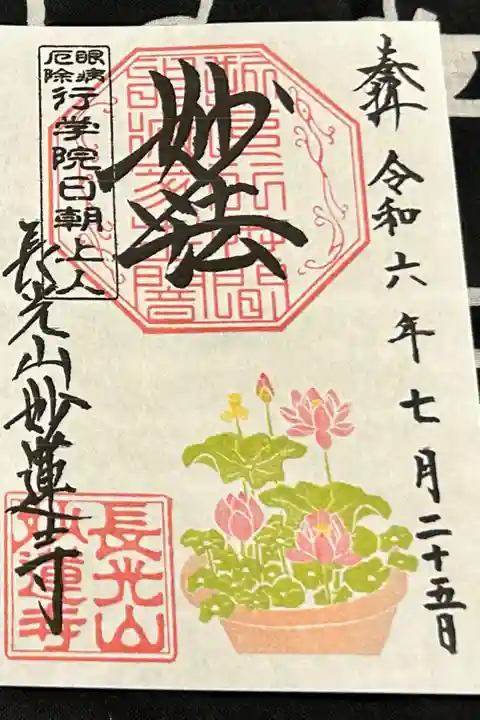 奉拝
令和六年七月二十五日
妙法
眼病
厄除
行学院日朝上人
長光山妙蓮寺
長光山
妙蓮寺